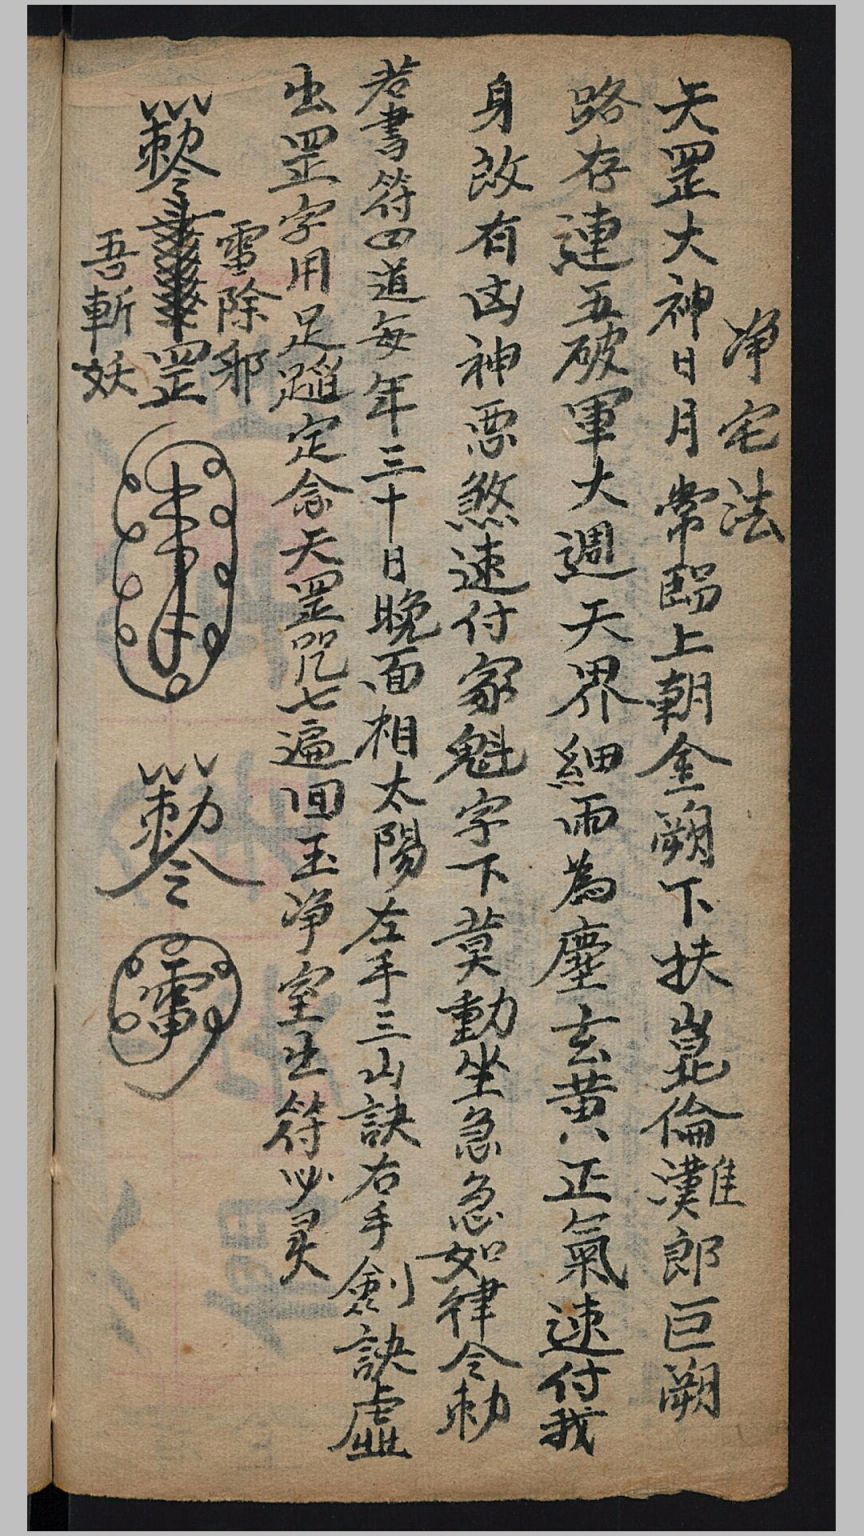 净宅法
天罡大神日月常臨上朝金闕下扶崑倫灘郎巨闕
路存連五破軍大週天界細雨為塵玄黄八正氣速付我
身故有凶神恶煞速付家魁字下莫動坐急急如律令勅
若書符四道每年三十日晚面相太陽左手三山訣右手劍訣虛
出罡字用足躧定念天罡咒七遍回玉净室出符必灵
靈除邪
勅令
罡
吾斬妖
勅令
雷